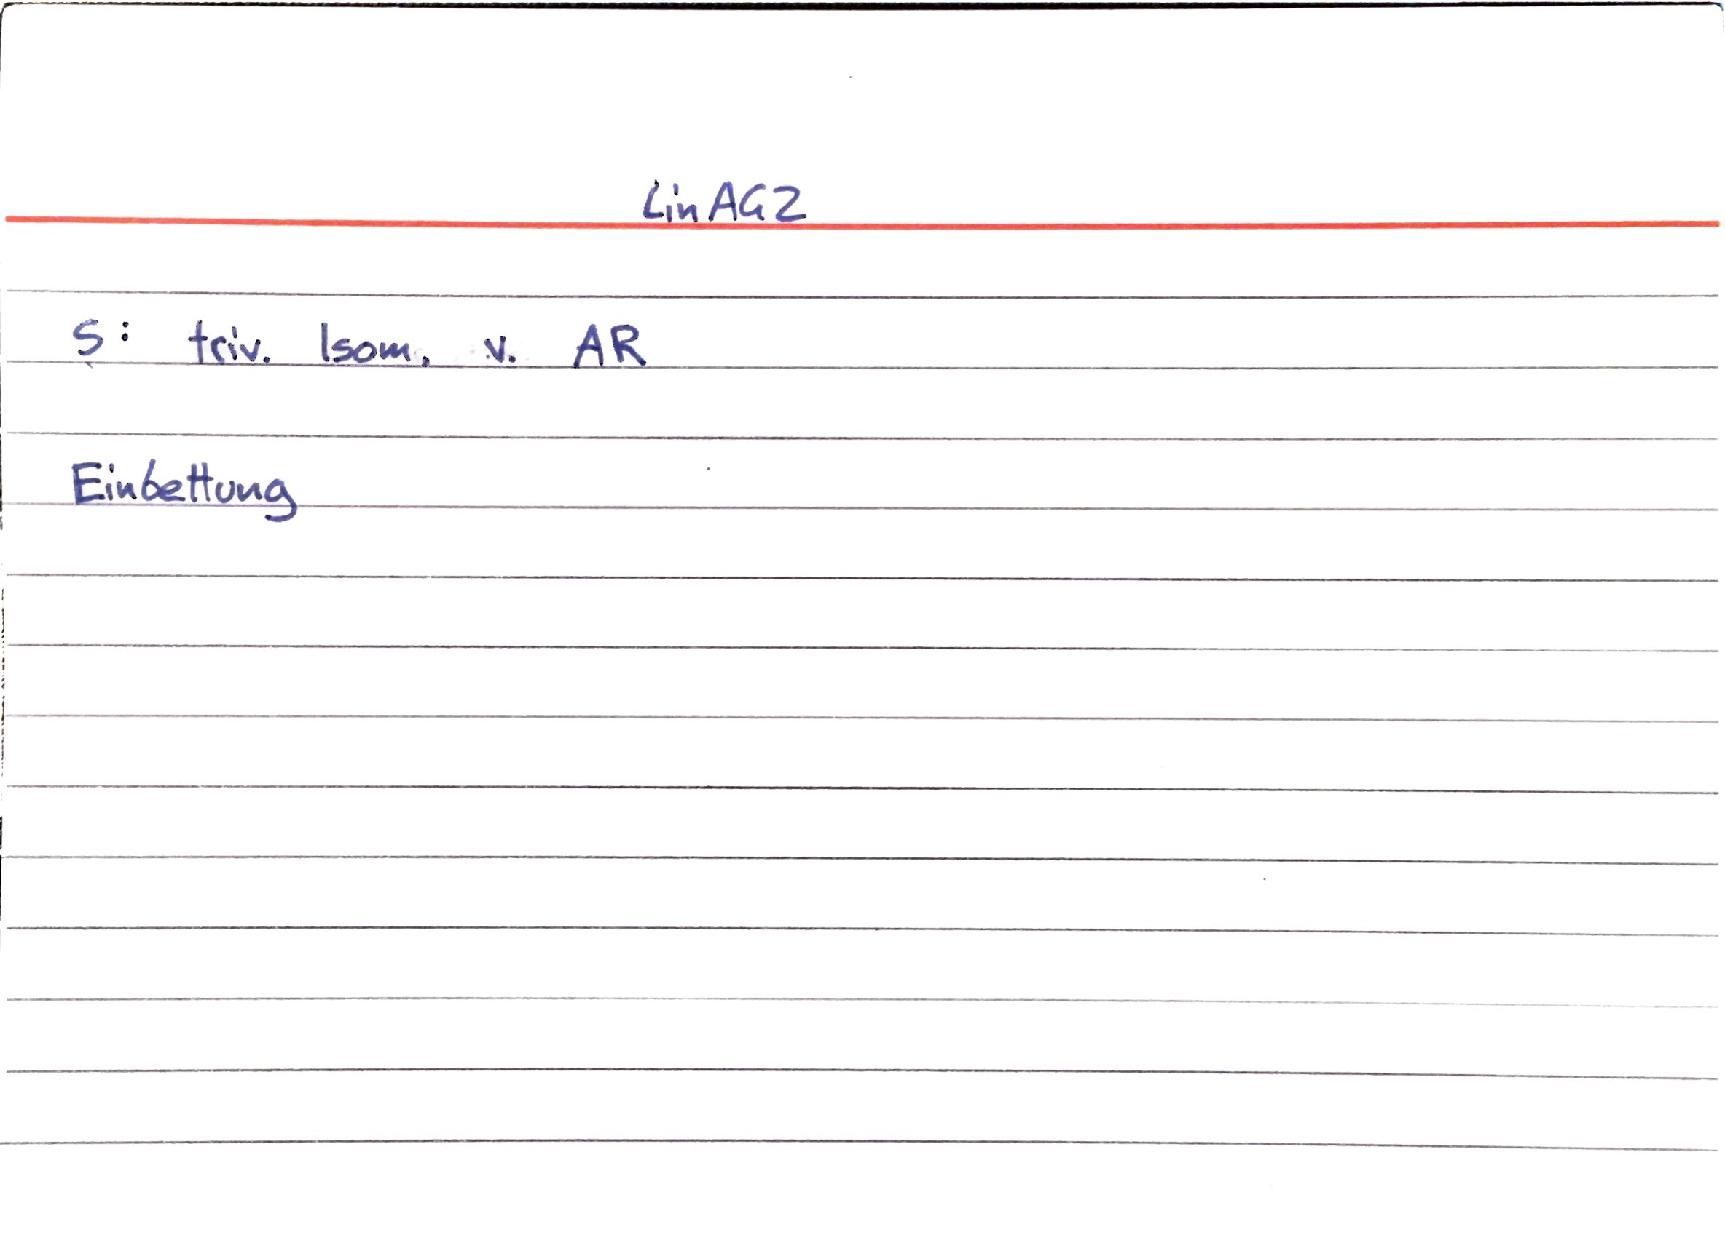 LinAG2
S: triv. Isom. v. AR
Einbettung